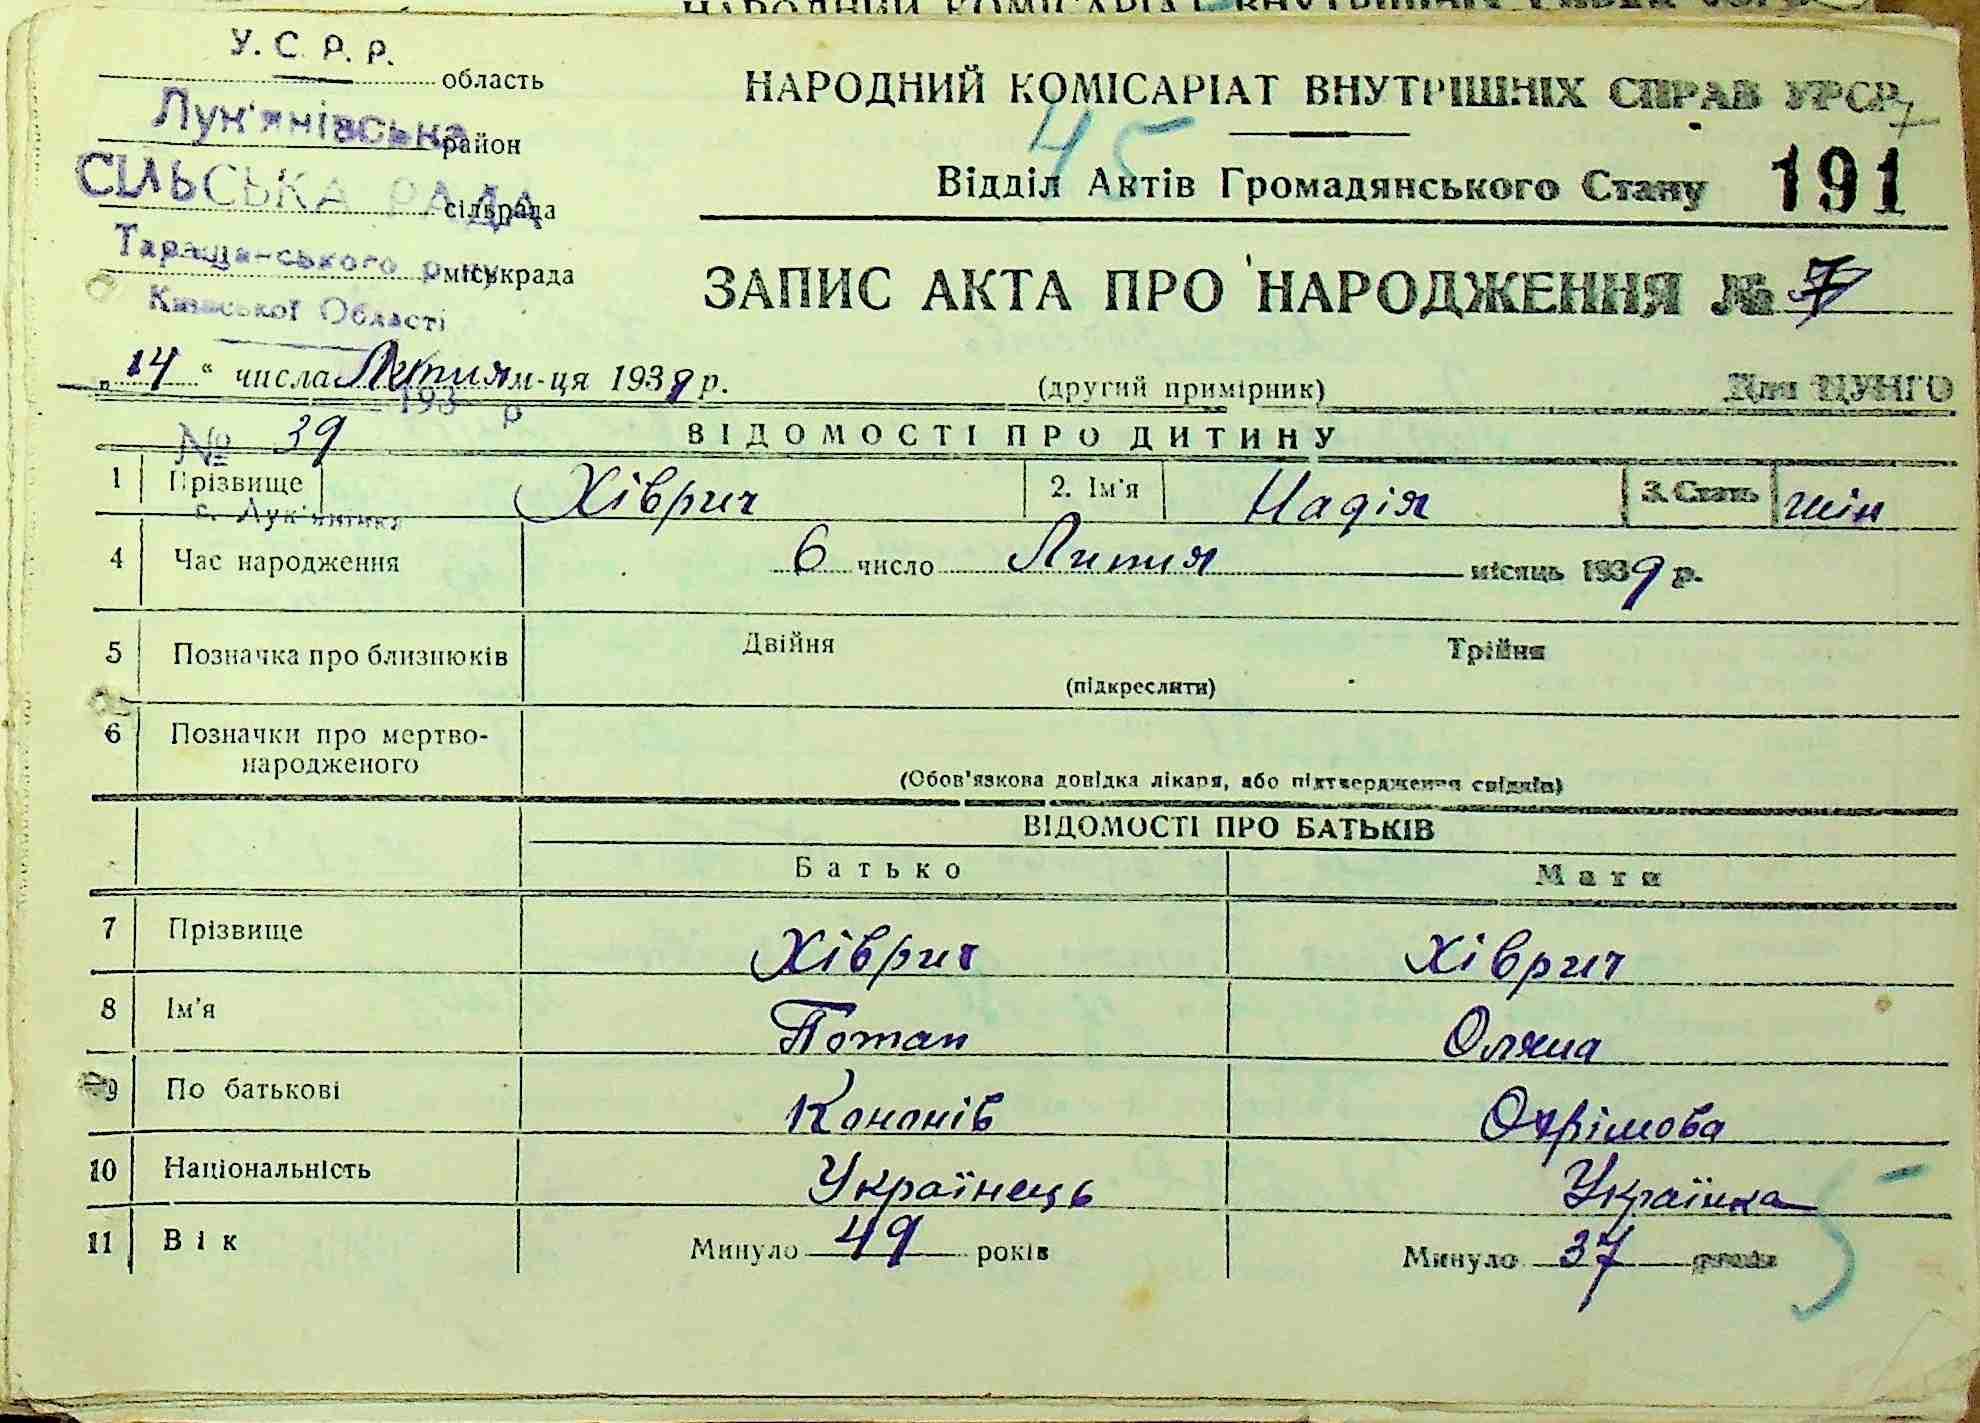 У. С. Р. Р.
область
Лук'янівська
район
СІЛЬСЬКА РАДА
сільрада
Таращанського р-ну
міськрада
Київської Області
НАРОДНИЙ КОМІСАРІАТ ВНУТРІШНІХ СПРАВ УРСР
7
45
Відділ Актів Громадянського Стану 191
ЗАПИС АКТА ПРО НАРОДЖЕННЯ № 7
„14“ числа Липня м-ця 1939 р.
(другий примірник) Для ЦУНГО
193 р
№ 39
ВІДОМОСТІ ПРО ДИТИНУ
1 Прізвище Хіврич 2. Ім'я Надія 3. Стать жін
с. Лук'янівка
4 Час народження 6 число Липня місяць 1939 р.
5 Позначка про близнюків Двійня Трійня
(підкреслити)
6 Позначки про мертво-
народженого
(Обов'язкова довідка лікаря, або підтвердження свідків)
ВІДОМОСТІ ПРО БАТЬКІВ
Батько Мати
7 Прізвище Хіврич Хіврич
8 Ім'я Потап Оляна
9 По батькові Кононів Охрімова
10 Національність Українець Українка
5
11 Вік Минуло 49 років Минуло 37 років